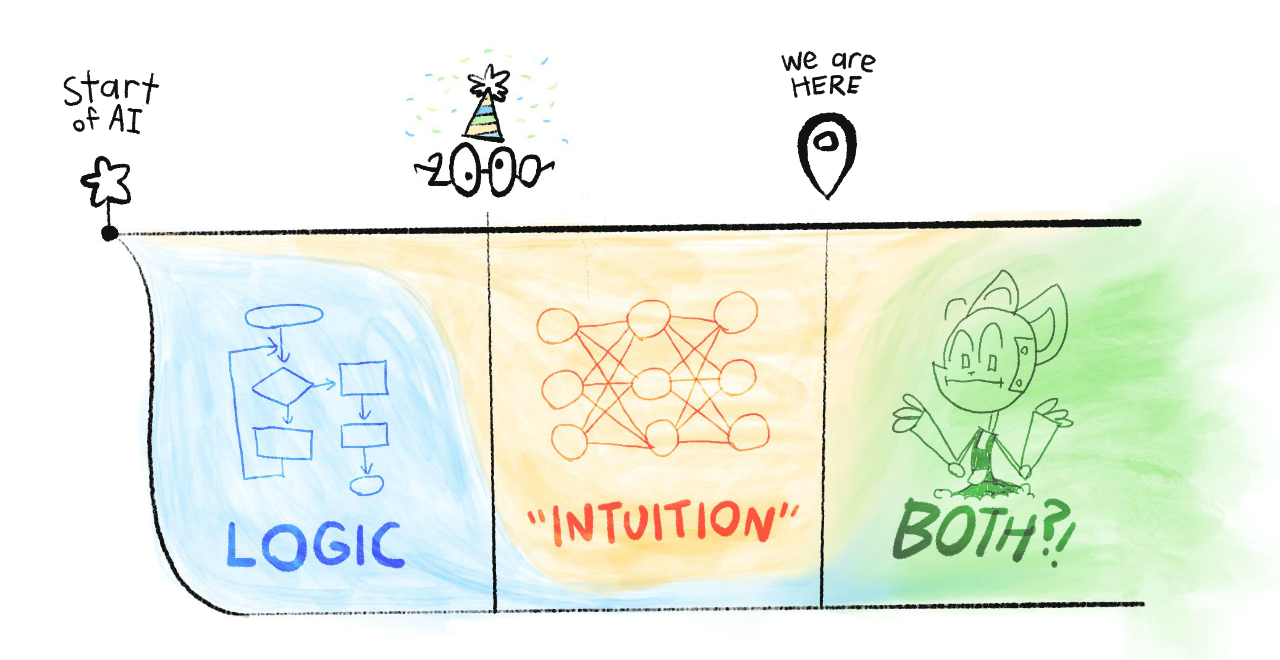 Start
of AI
2000
we are
HERE
LOGIC
"INTUITION"
BOTH?!